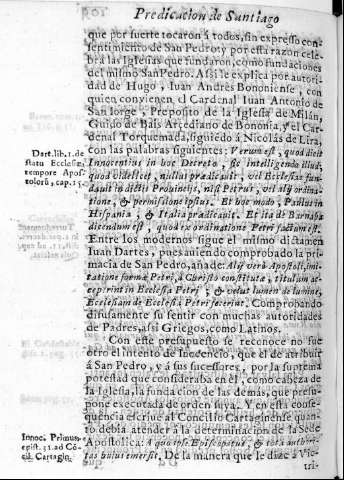 Predicacion de Santiago
que por suerte tocaron à todos, sin expresso con-
sentimiento de San Pedro: y por esta razon cele-
bra las Iglesias que fundaron, como fundaciones
del mismo San Pedro. Assi le explica por autori-
dad de Hugo, Iuan Andrès Bononiense, con
quien convienen el Cardenal Iuan Antonio de
San Iorge, Preposito de la Iglesia de Milàn,
Guido de Baïs Arcediano de Bononia, y el Car-
denal Torquemada, siguiẽdo à Nicolàs de Lira,
con las palabras siguientes: Verum est, quod dicit
Dart. lib. 1. de
statu Ecclesiæ,
tempore Apos
tolorũ, cap. 15.
Innocentius in hoc Decreto, sic intelligendo illud,
quod nullus prædicavit, vel Ecclesias fun-
davit in dictis Provincijs, nisi Petrus, vel alij ordina-
tione, & permissione ipsius. Et hoc modo, Paulus in
Hispania, & Italia prædicavit. Et ita de Barnaba
dicendum est, quod ex ordinatione Petri factum est.
Entre los modernos sigue el mismo dictamen
Iuan Dartes, pues aviendo comprobado la pri-
macìa de San Pedro, añade: Alij verò Apostoli, imi-
tatione formæ Petri, à Christo constitutæ, titulum ac-
ceperint in Ecclesia Petri, & velut lumen de lumine,
Ecclesiam de Ecclesia Petri fecerint. Comprobando
difusamente su sentir con muchas autoridades
de Padres, assi Griegos, como Latinos.
Con este presupuesto se reconoce no fue
otro el intento de Inocencio, que el de atribuir
à San Pedro, y à sus sucessores, por la suprema
potestad que consideraba en èl, como cabeza de
la Iglesia, la fundacion de las demàs, que presu-
pone executada de orden suya. Y en esta conse-
quencia escrive al Concilio Cartaginense quan-
to debia atender à la determinacion de la Sede
Innoc. Primus,
epist. 31. ad Cõ
cil. Cartagin.
Apostolica: A quo ipse Episcopatus, & tota authori-
tas huius emersit. De la manera que le dize à Vic-
tri-